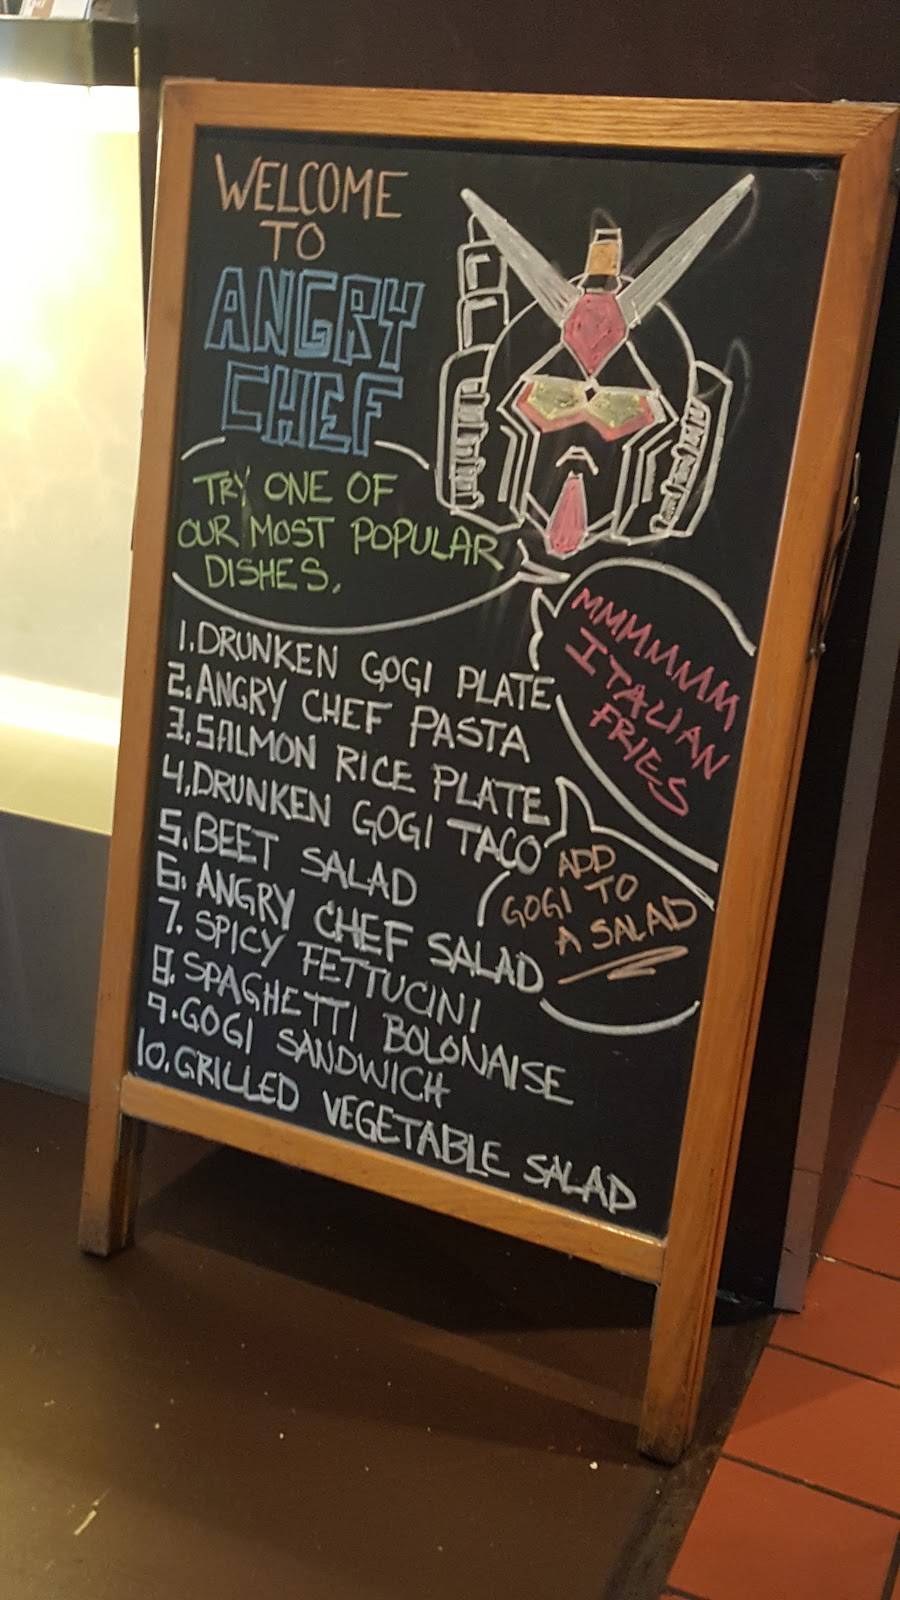 WELCOME
TO
ANGRY
CHEF
TRY ONE OF
OUR MOST POPULAR
DISHES.
MMMMMM
ITALIAN
FRIES
1. DRUNKEN GOGI PLATE
2. ANGRY CHEF PASTA
3. SALMON RICE PLATE
4. DRUNKEN GOGI TACO
5. BEET SALAD
6. ANGRY CHEF SALAD
7. SPICY FETTUCINI
8. SPAGHETTI BOLONAISE
9. GOGI SANDWICH
10. GRILLED VEGETABLE SALAD
ADD
GOGI TO
A SALAD